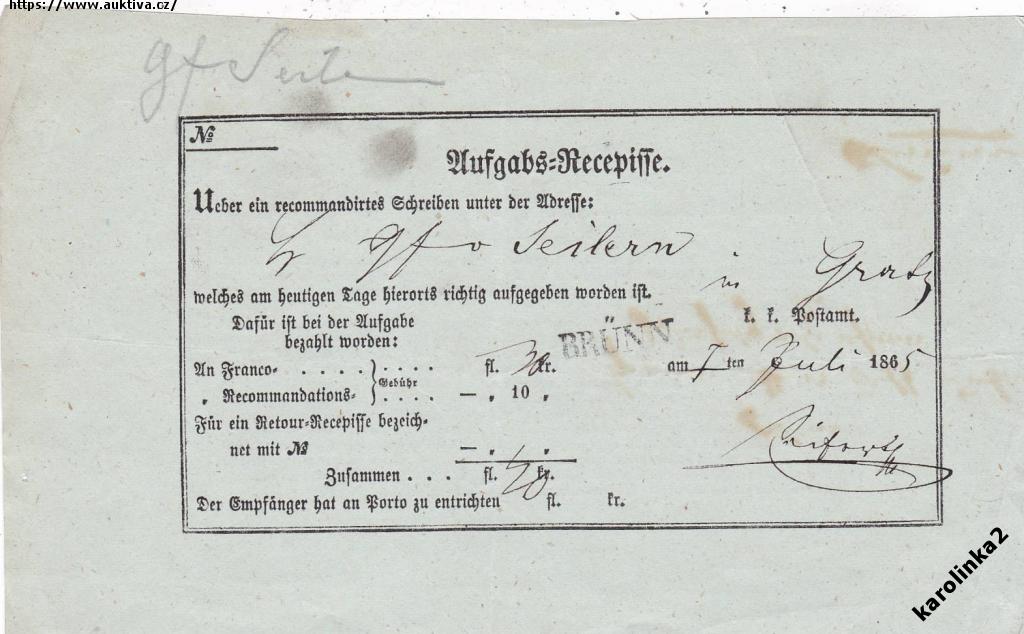 https://www.auktiva.cz/
Gf Seilern
№
Aufgabs-Recepisse.
Ueber ein recommandirtes Schreiben unter der Adresse:
Gf v Seilern in Gratz
welches am heutigen Tage hierorts richtig aufgegeben worden ist.
Dafür ist bei der Aufgabe
bezahlt worden:
k. k. Postamt.
BRÜNN
An Franco- . . . . . . . . . fl. 30 kr.
am 7 ten Juli 1865
Gebühr
„ Recommandations- . . . . — „ 10 „
Für ein Retour-Recepisse bezeich-
net mit № — „ „
Zusammen . . . fl. 40 kr.
Der Empfänger hat an Porto zu entrichten fl. kr.
karolinka2